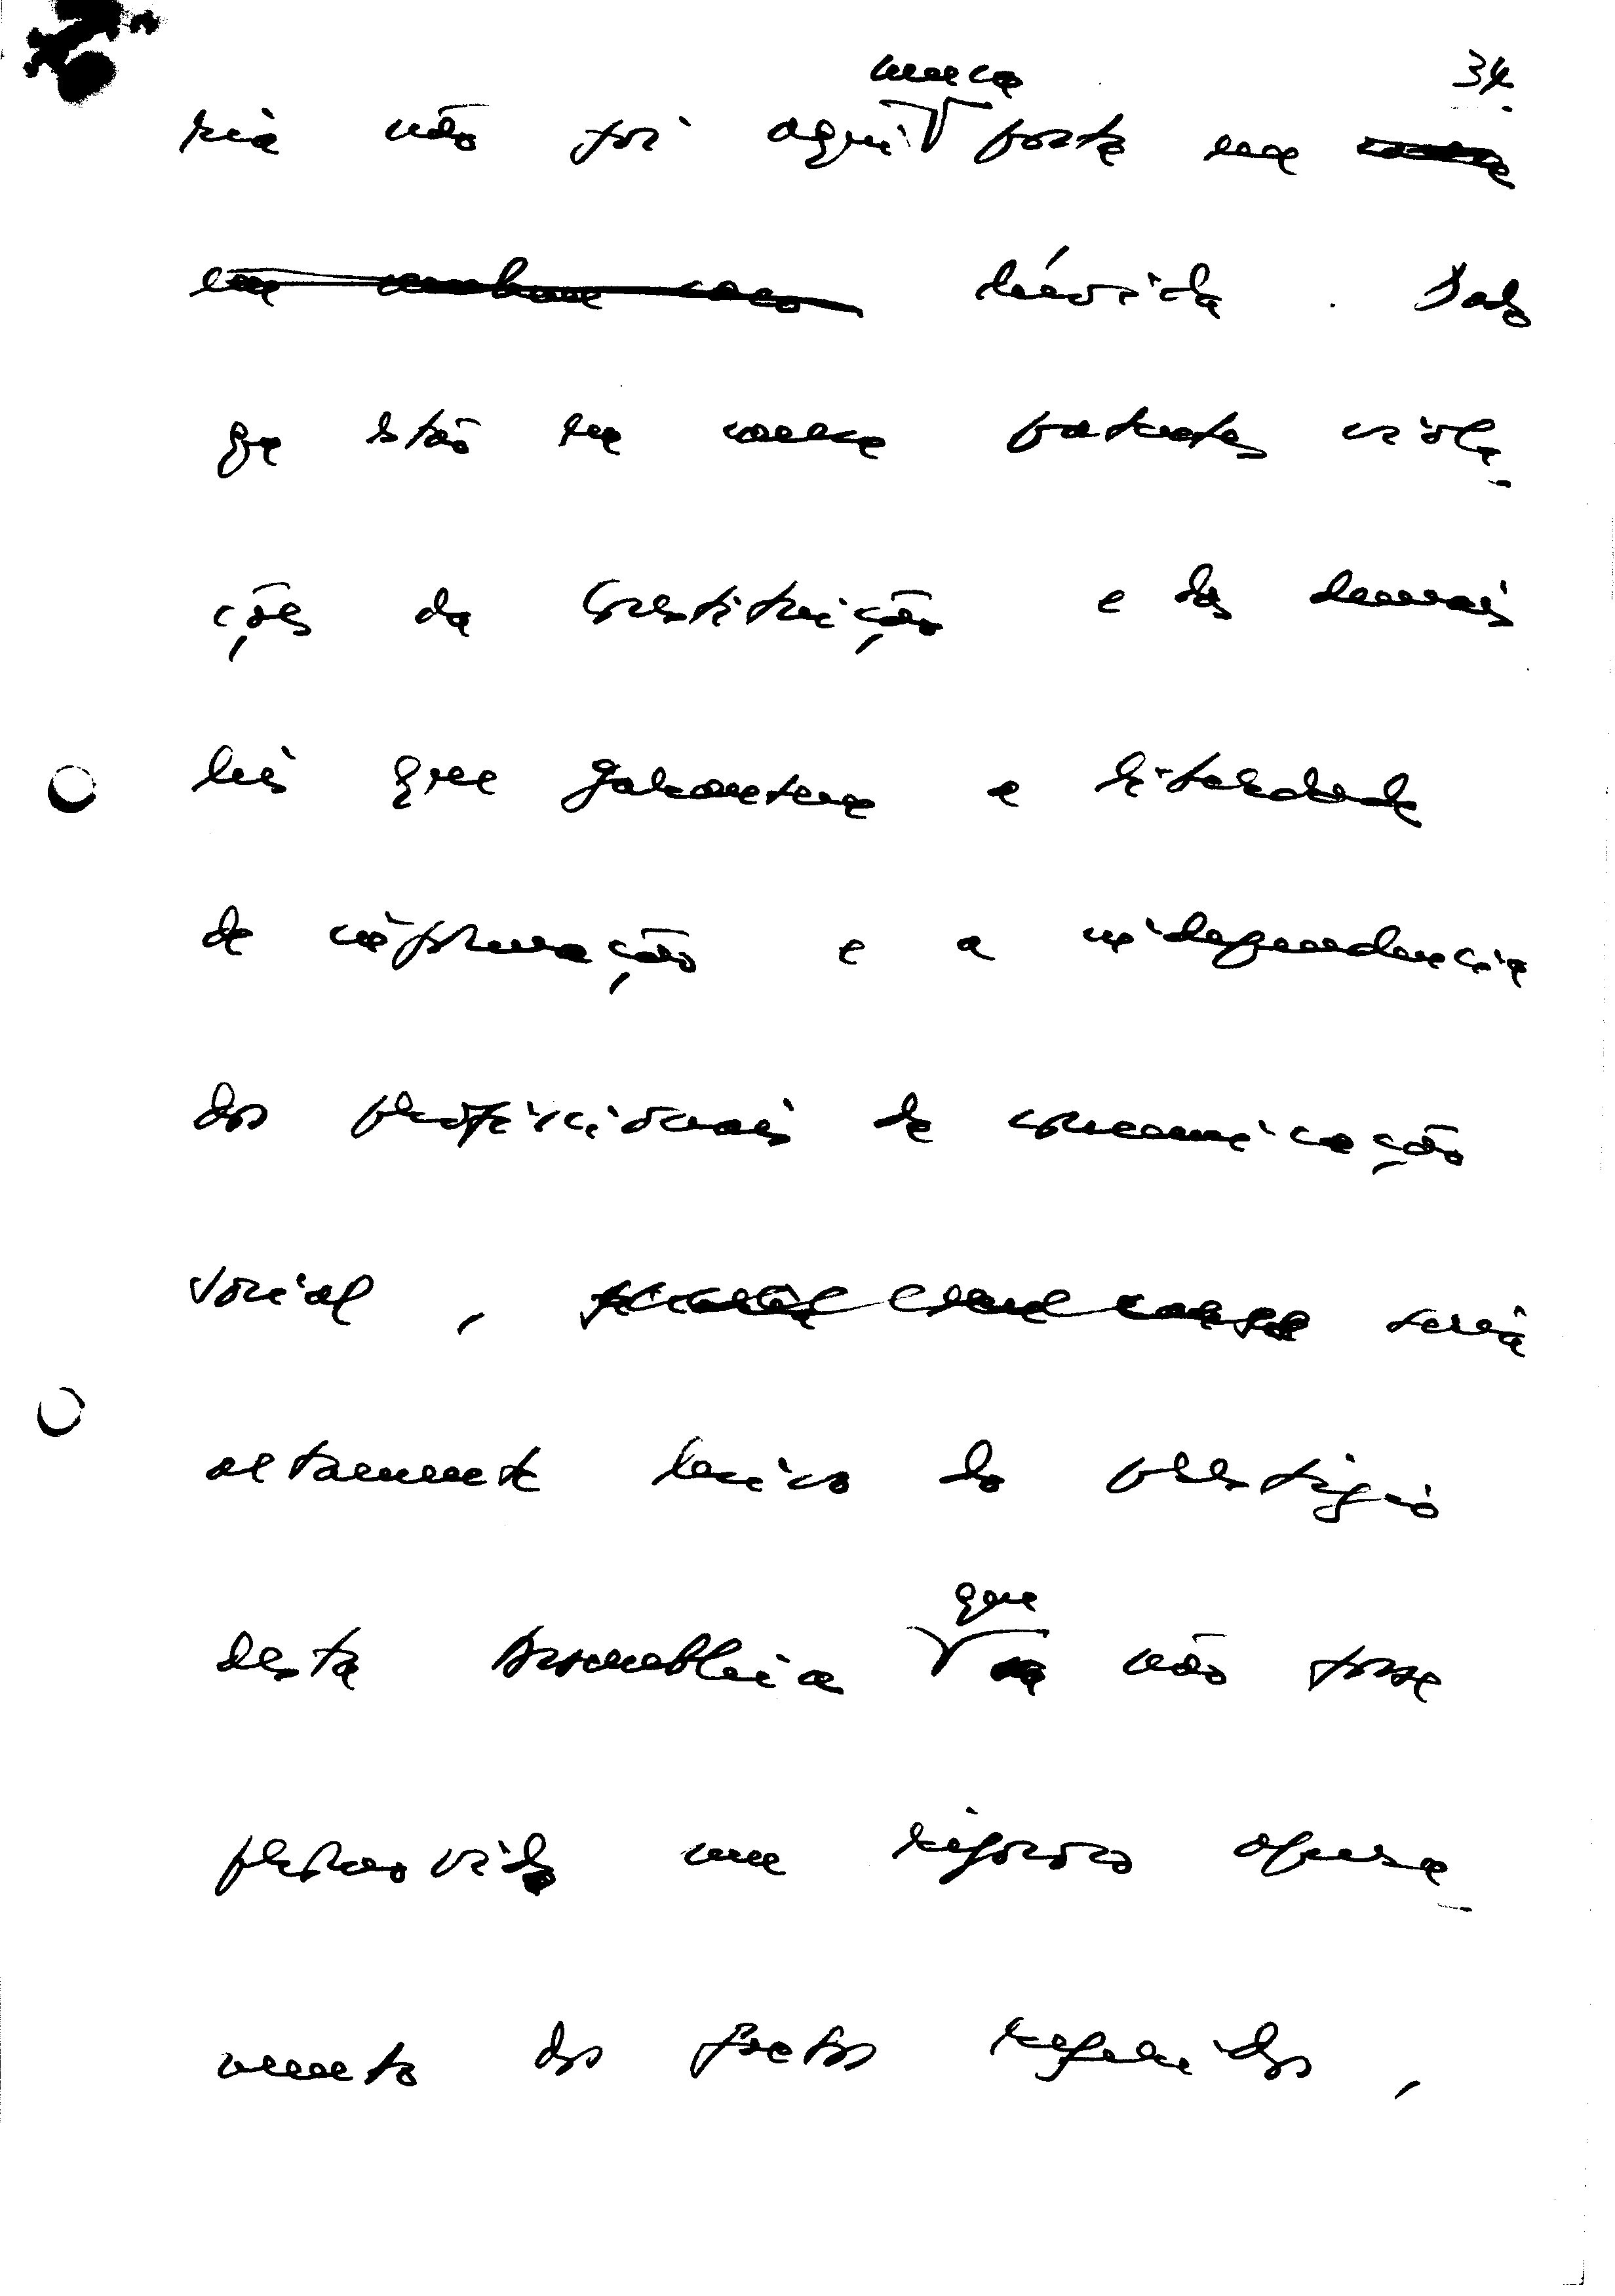 34
nunca
ria não foi aqui posta em
em nenhum caso dúvida. Das
que estão em causa patentes viola-
ções da Constituição e das demais
leis que garantem a liberdade
de informação e a independência
dos profissionais de comunicação
social, seria
altamente lesivo do prestígio
que
desta Assembleia não fosse
promovido um rigoroso apura-
mento dos factos referidos,